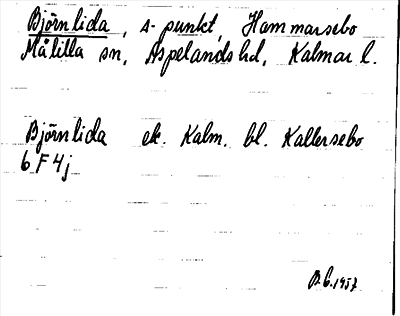 Björnlida, s-punkt, Hammarsebo
Målilla sn, Aspelands hd, Kalmar l.
Björnlida ek. Kalm. bl. Kallersebo
6 F 4j
B.C. 1957